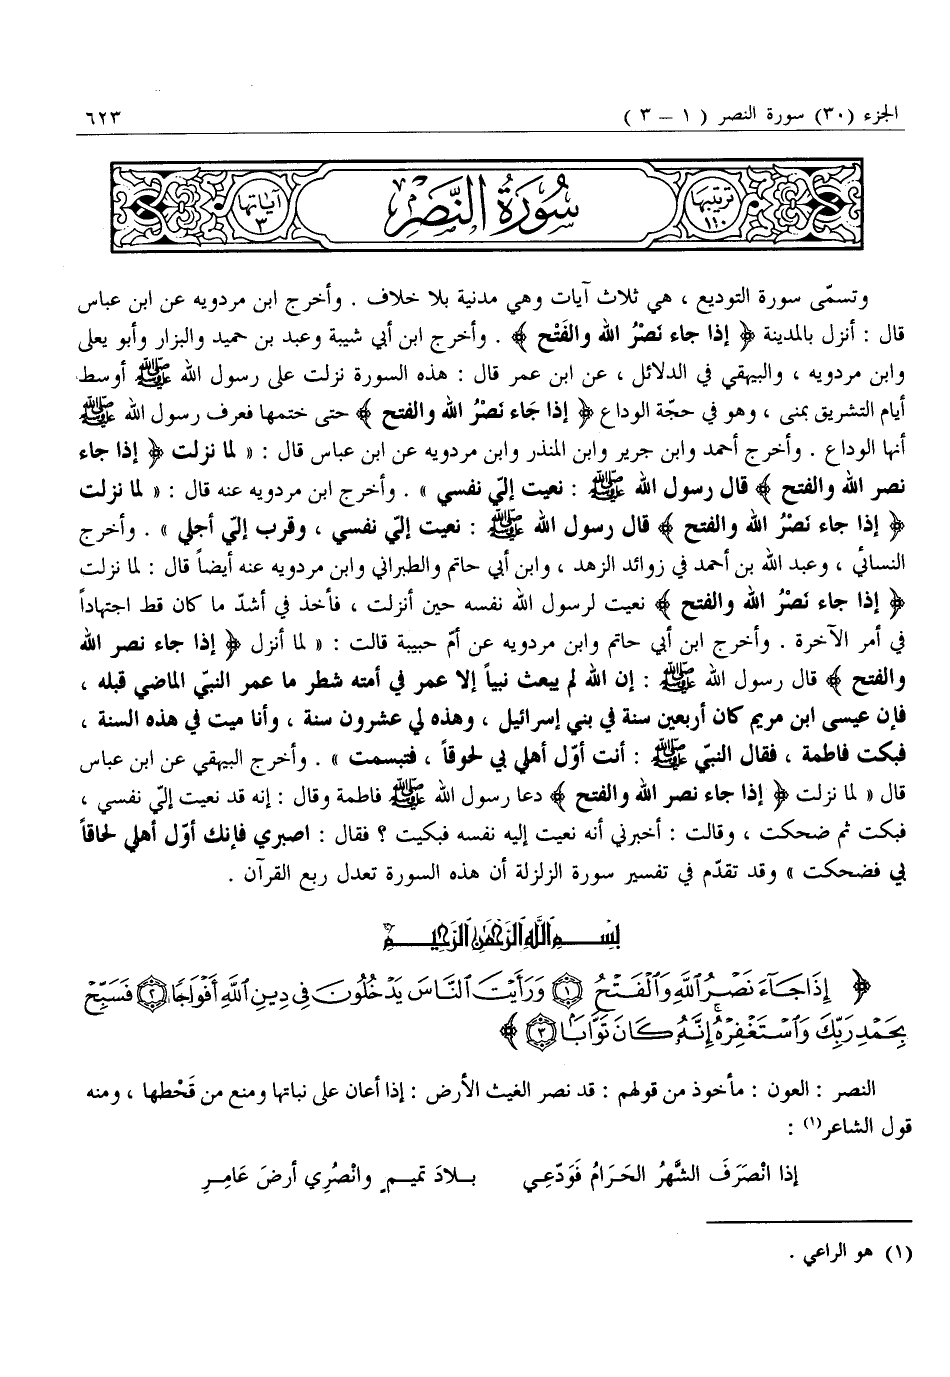 الجزء (٣٠) سورة النصر ( ١ – ٣ )
٦٢٣
ترتيبها ١١٠
سُورَةُ النَّصْرِ
آياتها ٣
وتسمّى سورة التوديع ، هي ثلاث آيات وهي مدنية بلا خلاف . وأخرج ابن مردويه عن ابن عباس
قال : أنزل بالمدينة ﴿ إذا جاء نَصْرُ الله والفَتْح ﴾ . وأخرج ابن أبي شيبة وعبد بن حميد والبزار وأبو يعلى
وابن مردويه ، والبيهقي في الدلائل ، عن ابن عمر قال : هذه السورة نزلت على رسول الله ﷺ أوسط
أيام التشريق بمنى ، وهو في حجّة الوداع ﴿ إذا جَاء نَصْرُ الله والفتح ﴾ حتى ختمها فعرف رسول الله ﷺ
أنها الوداع . وأخرج أحمد وابن جرير وابن المنذر وابن مردويه عن ابن عباس قال : « لما نزلت ﴿ إذا جاء
نصر الله والفتح ﴾ قال رسول الله ﷺ : نعيت إليّ نفسي » . وأخرج ابن مردويه عنه قال : « لما نزلت
﴿ إذا جاء نَصْرُ الله والفتح ﴾ قال رسول الله ﷺ : نعيت إليّ نفسي ، وقرب إليّ أجلي » . وأخرج
النسائي ، وعبد الله بن أحمد في زوائد الزهد ، وابن أبي حاتم والطبراني وابن مردويه عنه أيضاً قال : لما نزلت
﴿ إذا جاء نَصْرُ الله والفتح ﴾ نعيت لرسول الله نفسه حين أنزلت ، فأخذ في أشدّ ما كان قط اجتهاداً
في أمر الآخرة . وأخرج ابن أبي حاتم وابن مردويه عن أمّ حبيبة قالت : « لما أنزل ﴿ إذا جاء نصر الله
والفتح ﴾ قال رسول الله ﷺ : إن الله لم يبعث نبياً إلا عمر في أمته شطر ما عمر النبيّ الماضي قبله ،
فإن عيسى ابن مريم كان أربعين سنة في بني إسرائيل ، وهذه لي عشرون سنة ، وأنا ميت في هذه السنة ،
فبكت فاطمة ، فقال النبيّ ﷺ : أنت أوّل أهلي بي لحوقاً ، فتبسمت » . وأخرج البيهقي عن ابن عباس
قال « لما نزلت ﴿ إذا جاء نصر الله والفتح ﴾ دعا رسول الله ﷺ فاطمة وقال : إنه قد نعيت إليّ نفسي ،
فبكت ثم ضحكت ، وقالت : أخبرني أنه نعيت إليه نفسه فبكيت ؟ فقال : اصبري فإنك أوّل أهلي لحاقاً
بي فضحكت » وقد تقدّم في تفسير سورة الزلزلة أن هذه السورة تعدل ربع القرآن .
بِسْمِ ٱللَّهِ ٱلرَّحْمَٰنِ ٱلرَّحِيمِ
﴿ إِذَا جَآءَ نَصْرُ ٱللَّهِ وَٱلْفَتْحُ ١ وَرَأَيْتَ ٱلنَّاسَ يَدْخُلُونَ فِي دِينِ ٱللَّهِ أَفْوَاجًا ٢ فَسَبِّحْ
بِحَمْدِ رَبِّكَ وَٱسْتَغْفِرْهُ ۚ إِنَّهُۥ كَانَ تَوَّابًۢا ٣ ﴾
النصر : العون : مأخوذ من قولهم : قد نصر الغيث الأرض : إذا أعان على نباتها ومنع من قَحْطها ، ومنه
قول الشاعر(١) :
إذا انْصَرَفَ الشَّهْرُ الحَرَامُ فَوَدِّعِي بلادَ تميمٍ وانْصُرِي أرضَ عَامِرِ
(١) هو الراعي .